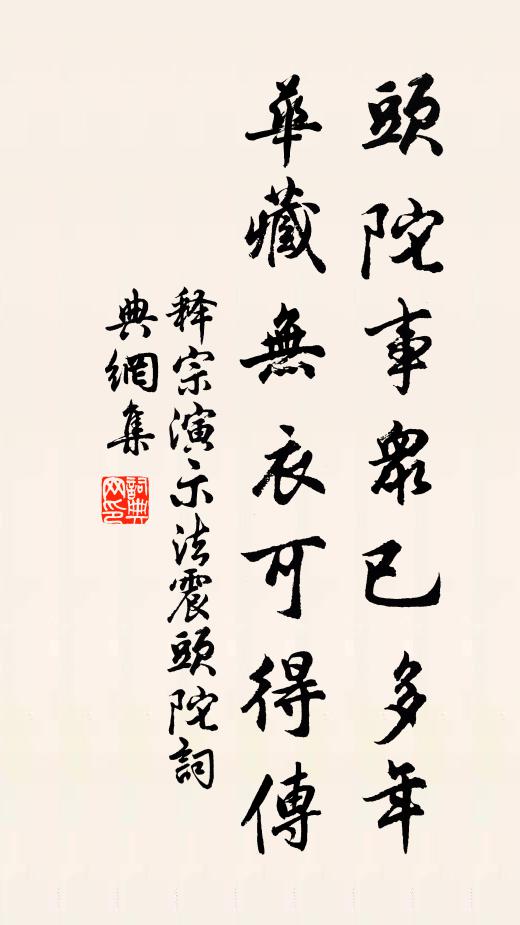 頭陀事眾已多年
華藏無衣可得傳
释宗演示法震頭陀詞
典網集
詞典網印